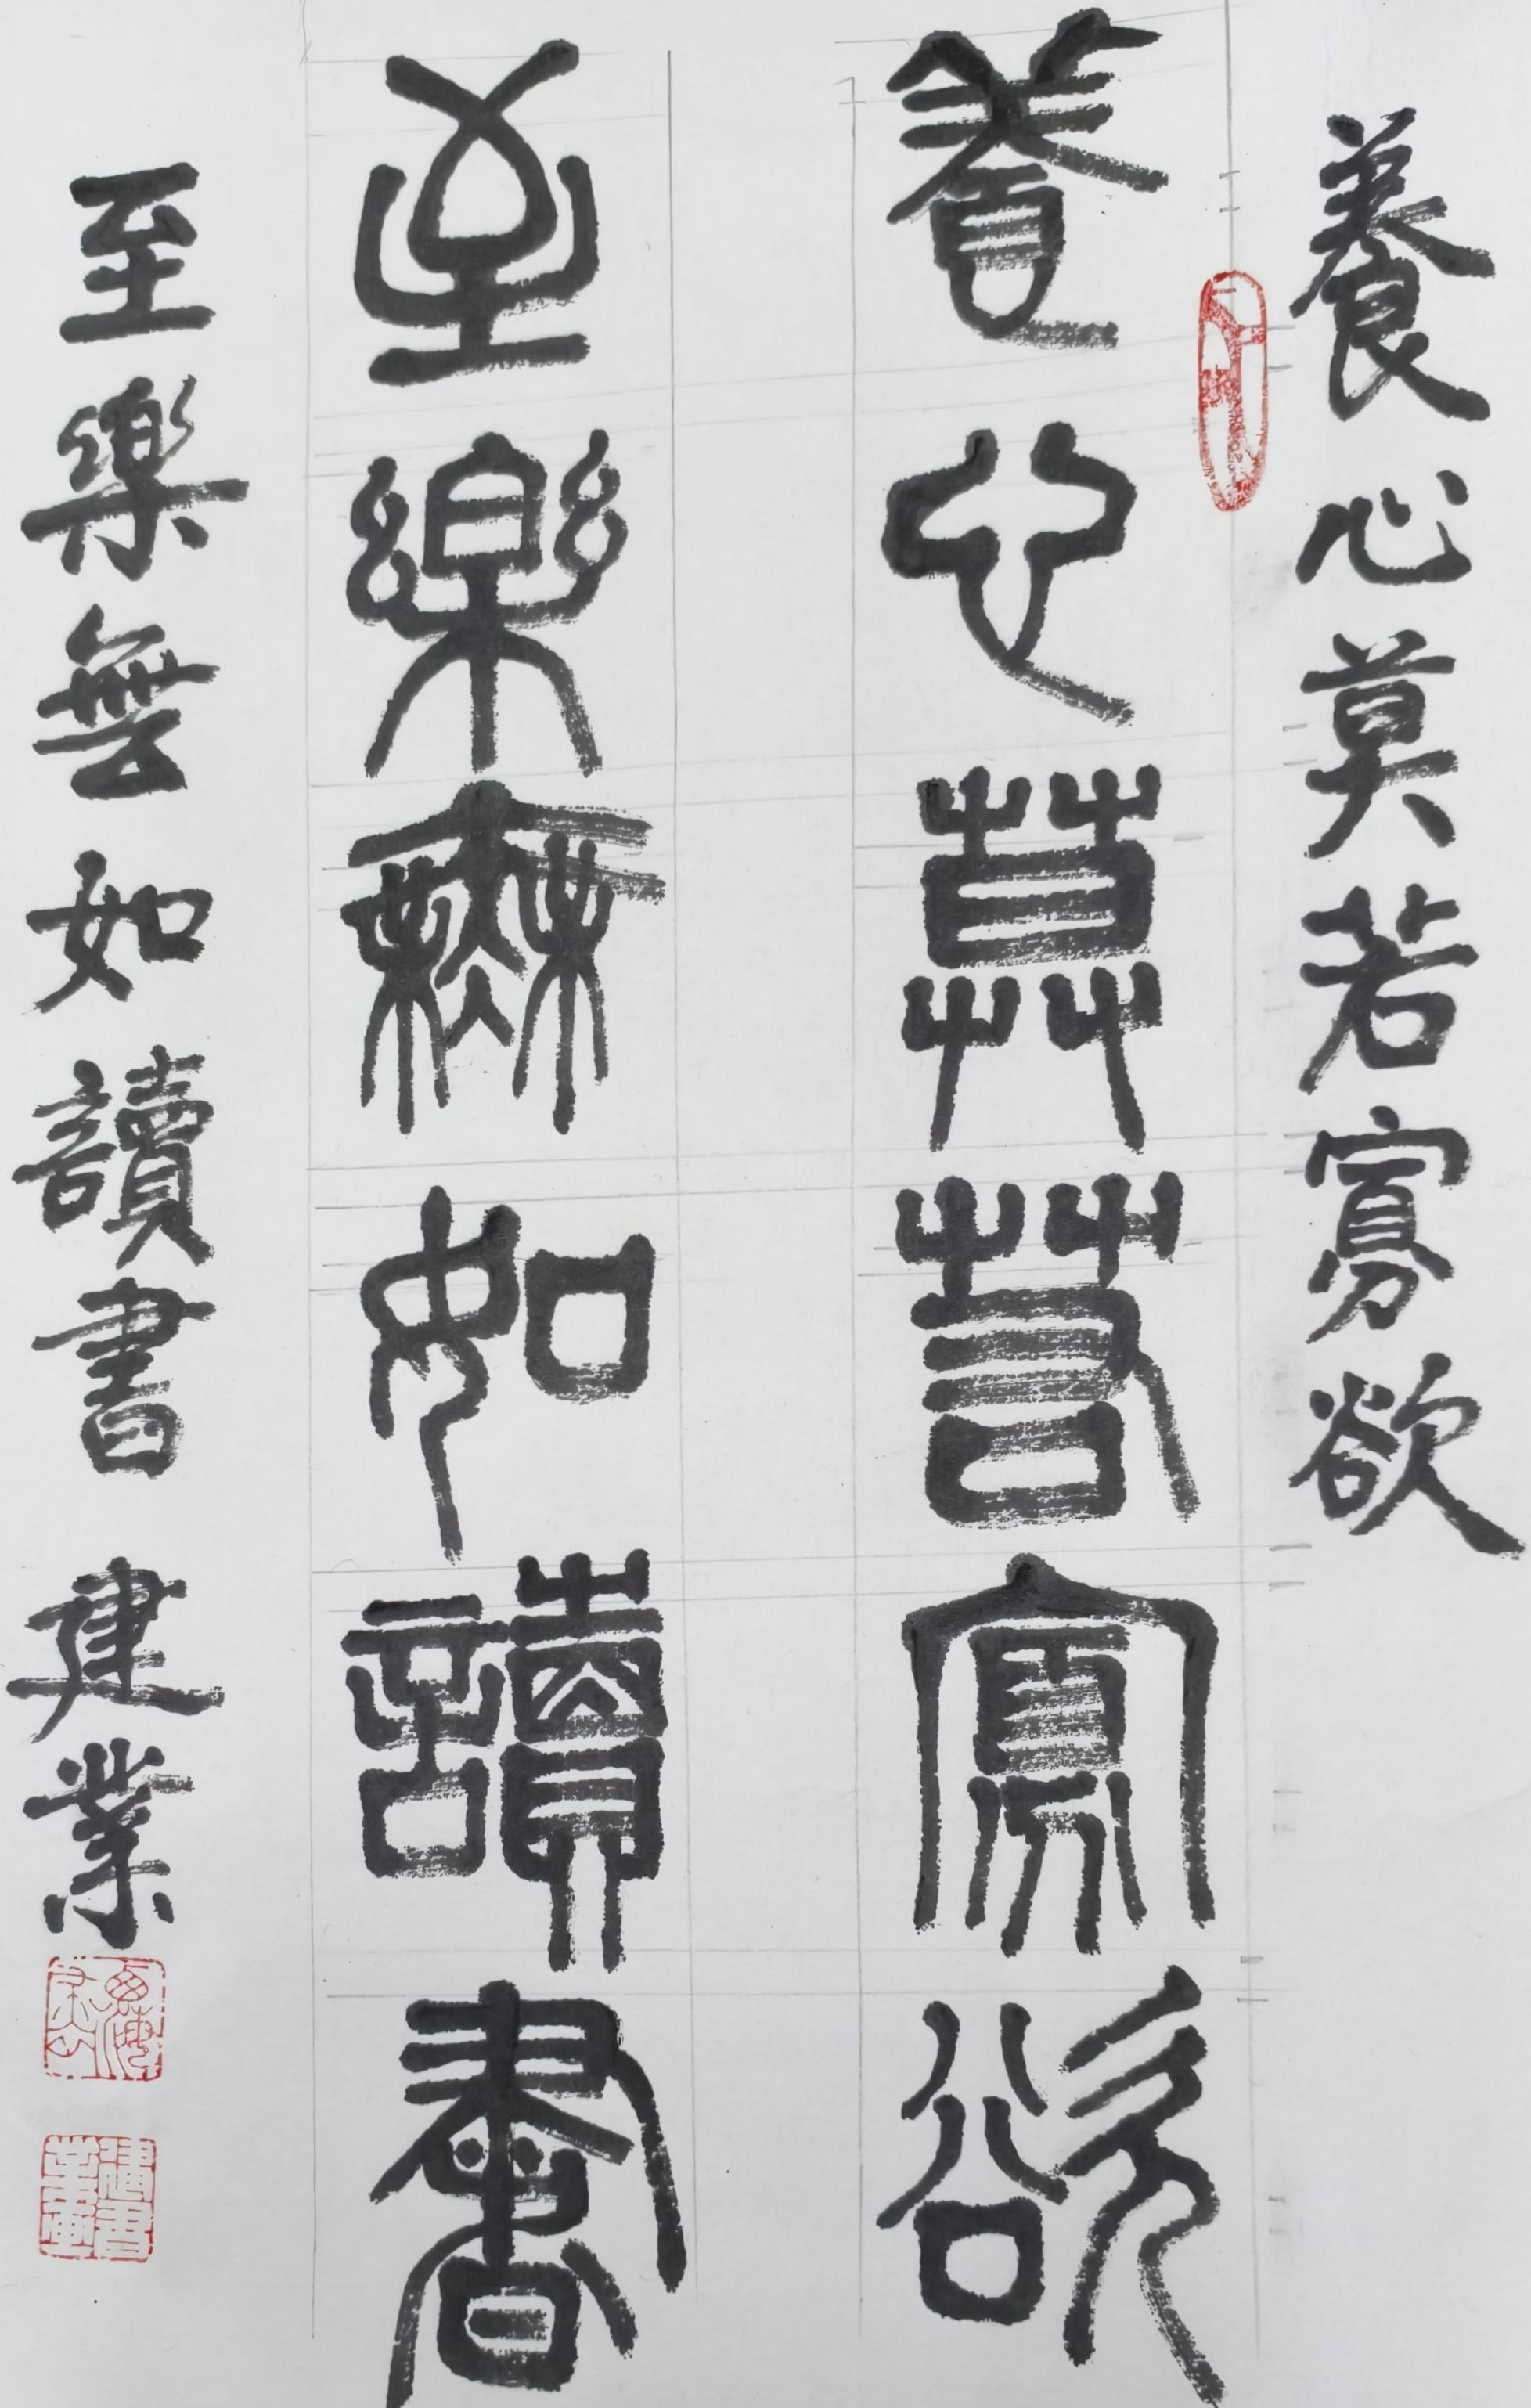 養心莫若寡欲
養心莫若寡欲
至樂無如讀書
至樂無如讀書 建業